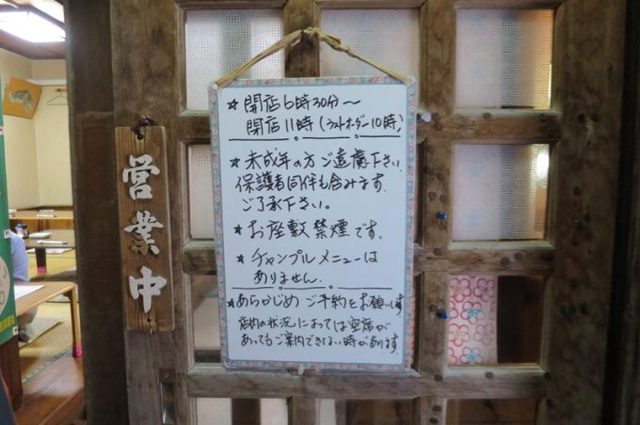 営業中
★ 開店6時30分〜
閉店11時(ラストオーダー10時)
★ 未成年の方ご遠慮下さい
保護者同伴も含みます
ご了承下さい。
★ お座敷禁煙です。
★ チャンプルメニューは
ありません。
★ あらかじめご予約をお願います
店内の状況によっては空席が
あってもご案内できない時があります